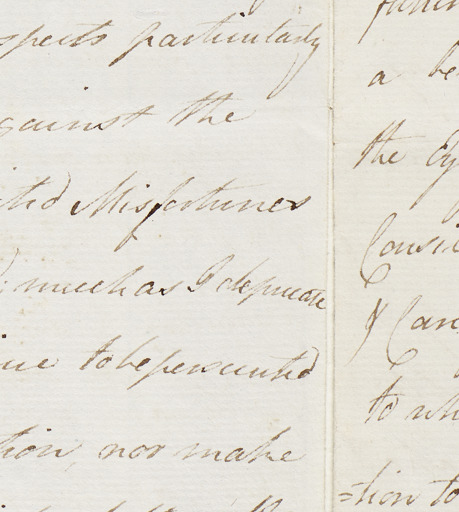 spects particularly
gainst the
ited Misfortunes
much as I deprecate
ine to be persecuted
tion, nor make
a be
the Ey
Consi
& Can
to wh
=tion to